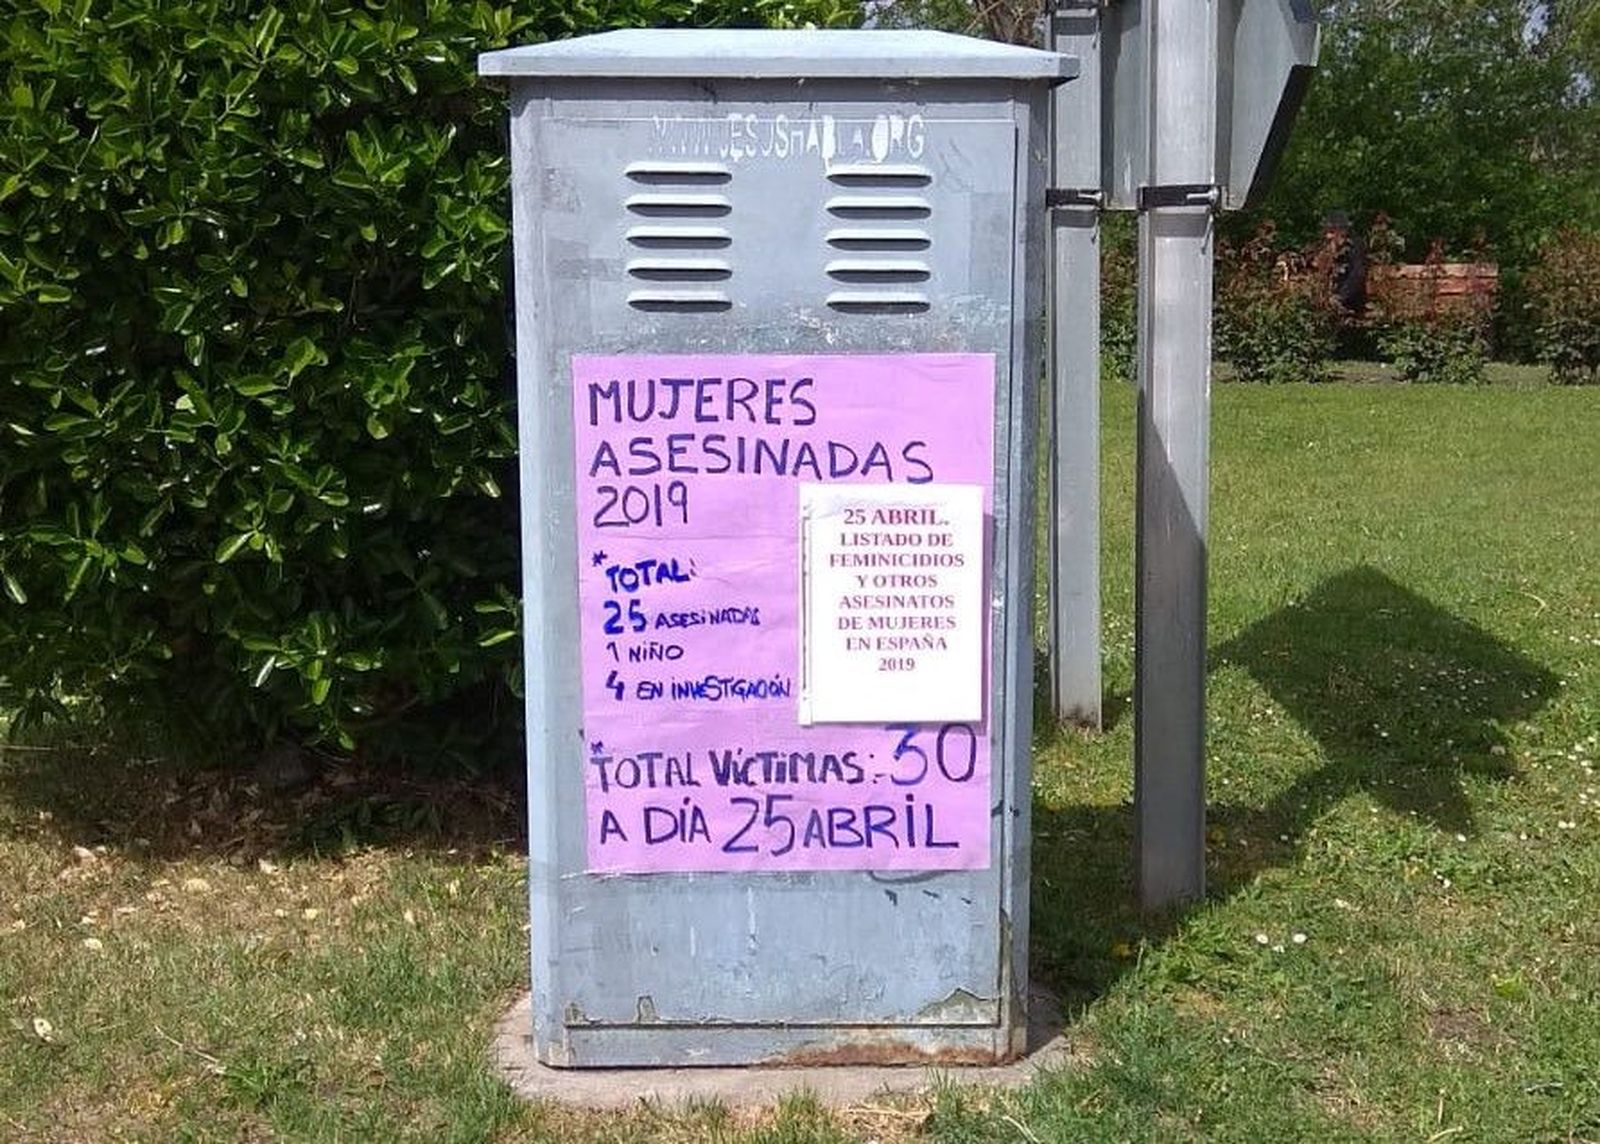 WWW.JESUSHABLA.ORG
MUJERES
ASESINADAS
2019
*TOTAL:
25 ASESINADAS
1 NIÑO
4 EN INVESTIGACIÓN
25 ABRIL.
LISTADO DE
FEMINICIDIOS
Y OTROS
ASESINATOS
DE MUJERES
EN ESPAÑA
2019
*TOTAL VÍCTIMAS: 30
A DÍA 25 ABRIL